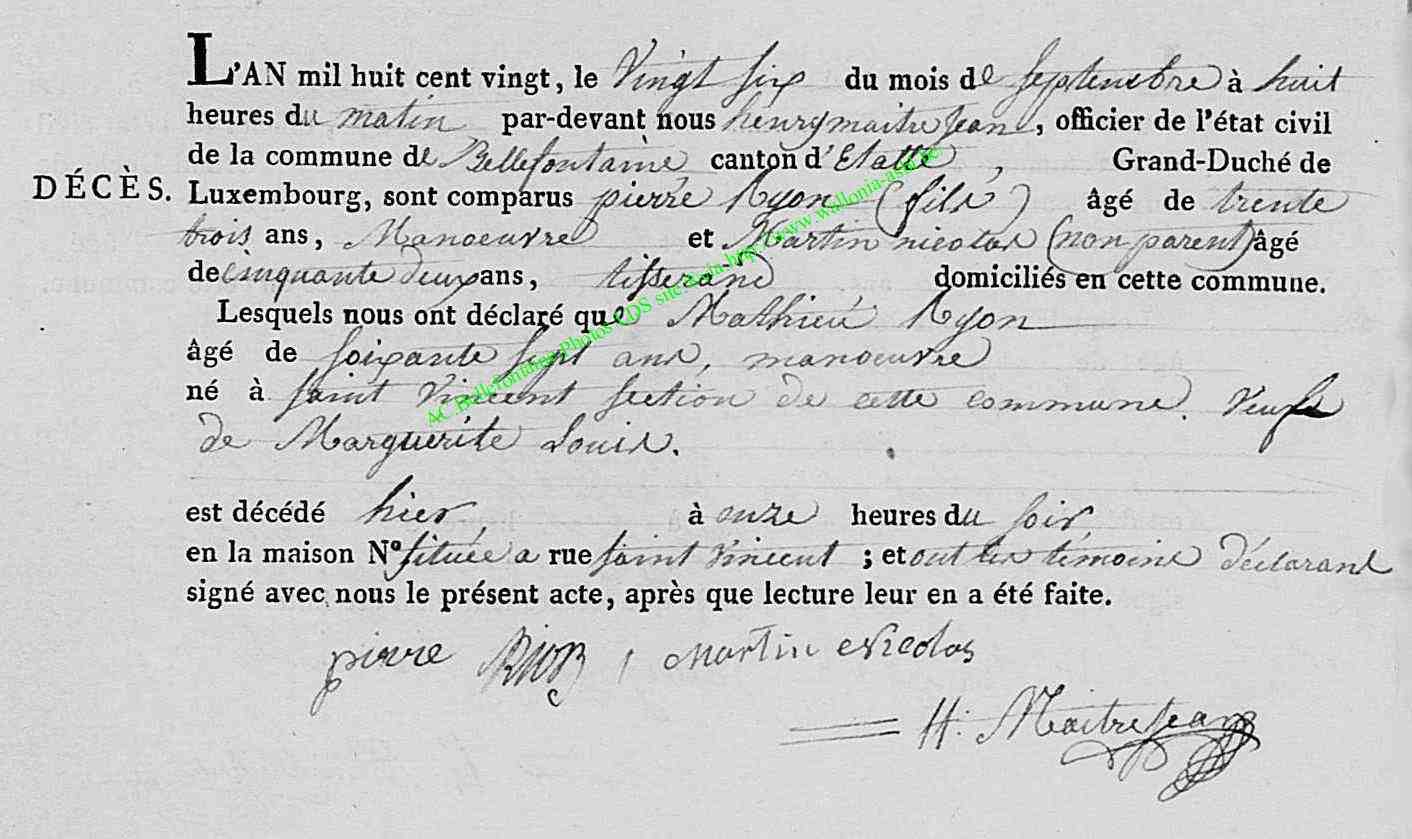 L'AN mil huit cent vingt, le Vingt six du mois de septembre à huit
heures du matin par-devant nous henry maitre jean, officier de l'état civil
de la commune de Bellefontaine canton d'Etalle, Grand-Duché de
DÉCÈS. Luxembourg, sont comparus pierre Ryon (fils) âgé de trente
trois ans, Manoeuvre et Martin nicolas (non parent) âgé
de cinquante deux ans, tisserand domiciliés en cette commune.
Lesquels nous ont déclaré que Mathieu Ryon
âgé de soixante sept ans, manoeuvre
né à saint Vincent section de cette commune. Veuf
de Marguerite Louis.
est décédé hier, à onze heures du soir
en la maison N° située a rue saint Vincent ; et ont les témoins déclarant
signé avec nous le présent acte, après que lecture leur en a été faite.
pierre Rion, Martin Nicolas
H. Maitrejean
AC Bellefontaine Photos CDS site http://www.wallonia-asbl.be/